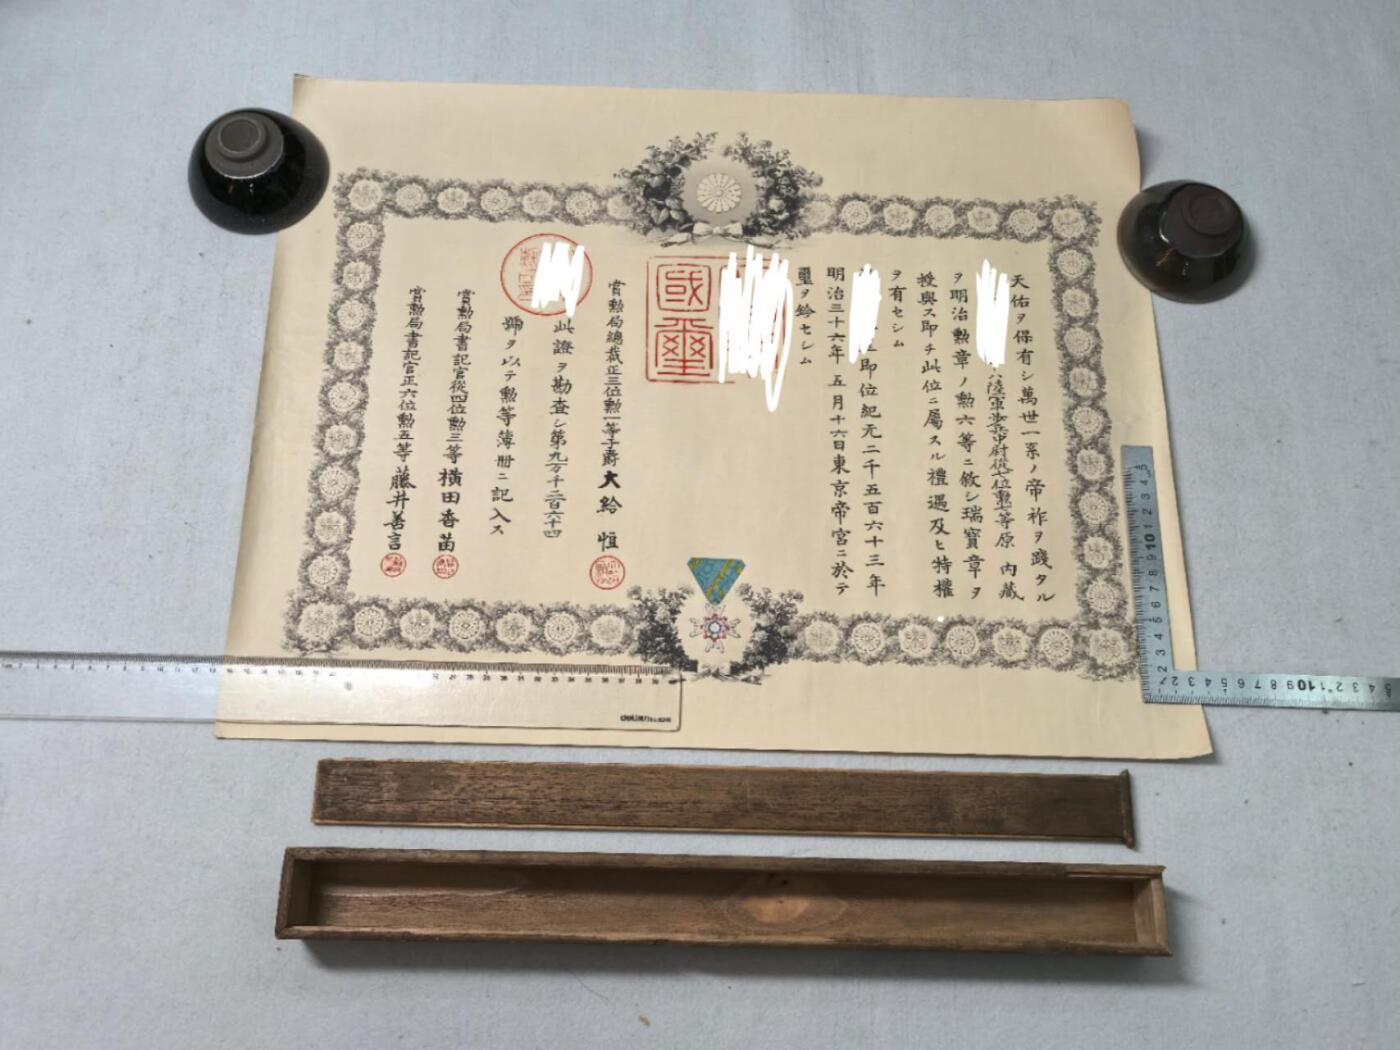 天佑ヲ保有シ萬世一系ノ帝祚ヲ踐タル
陸軍歩兵中尉從七位勲七等原内藏
ヲ明治勲章ノ勲六等ニ敘シ瑞寶章ヲ
授與ス即チ此位ニ屬スル禮遇及ヒ特權
ヲ有セシム
即位紀元二千五百六十三年
明治三十六年五月十六日東京帝宮ニ於テ
璽ヲ鈐セシム
國璽
賞勲局總裁正三位勲一等子爵大給恒
此證ヲ勘査シ第九万千二百六十四
號ヲ以テ勲等簿册ニ記入ス
賞勲局書記官從四位勲三等横田香苗
賞勲局書記官正六位勲五等藤井善言
deli